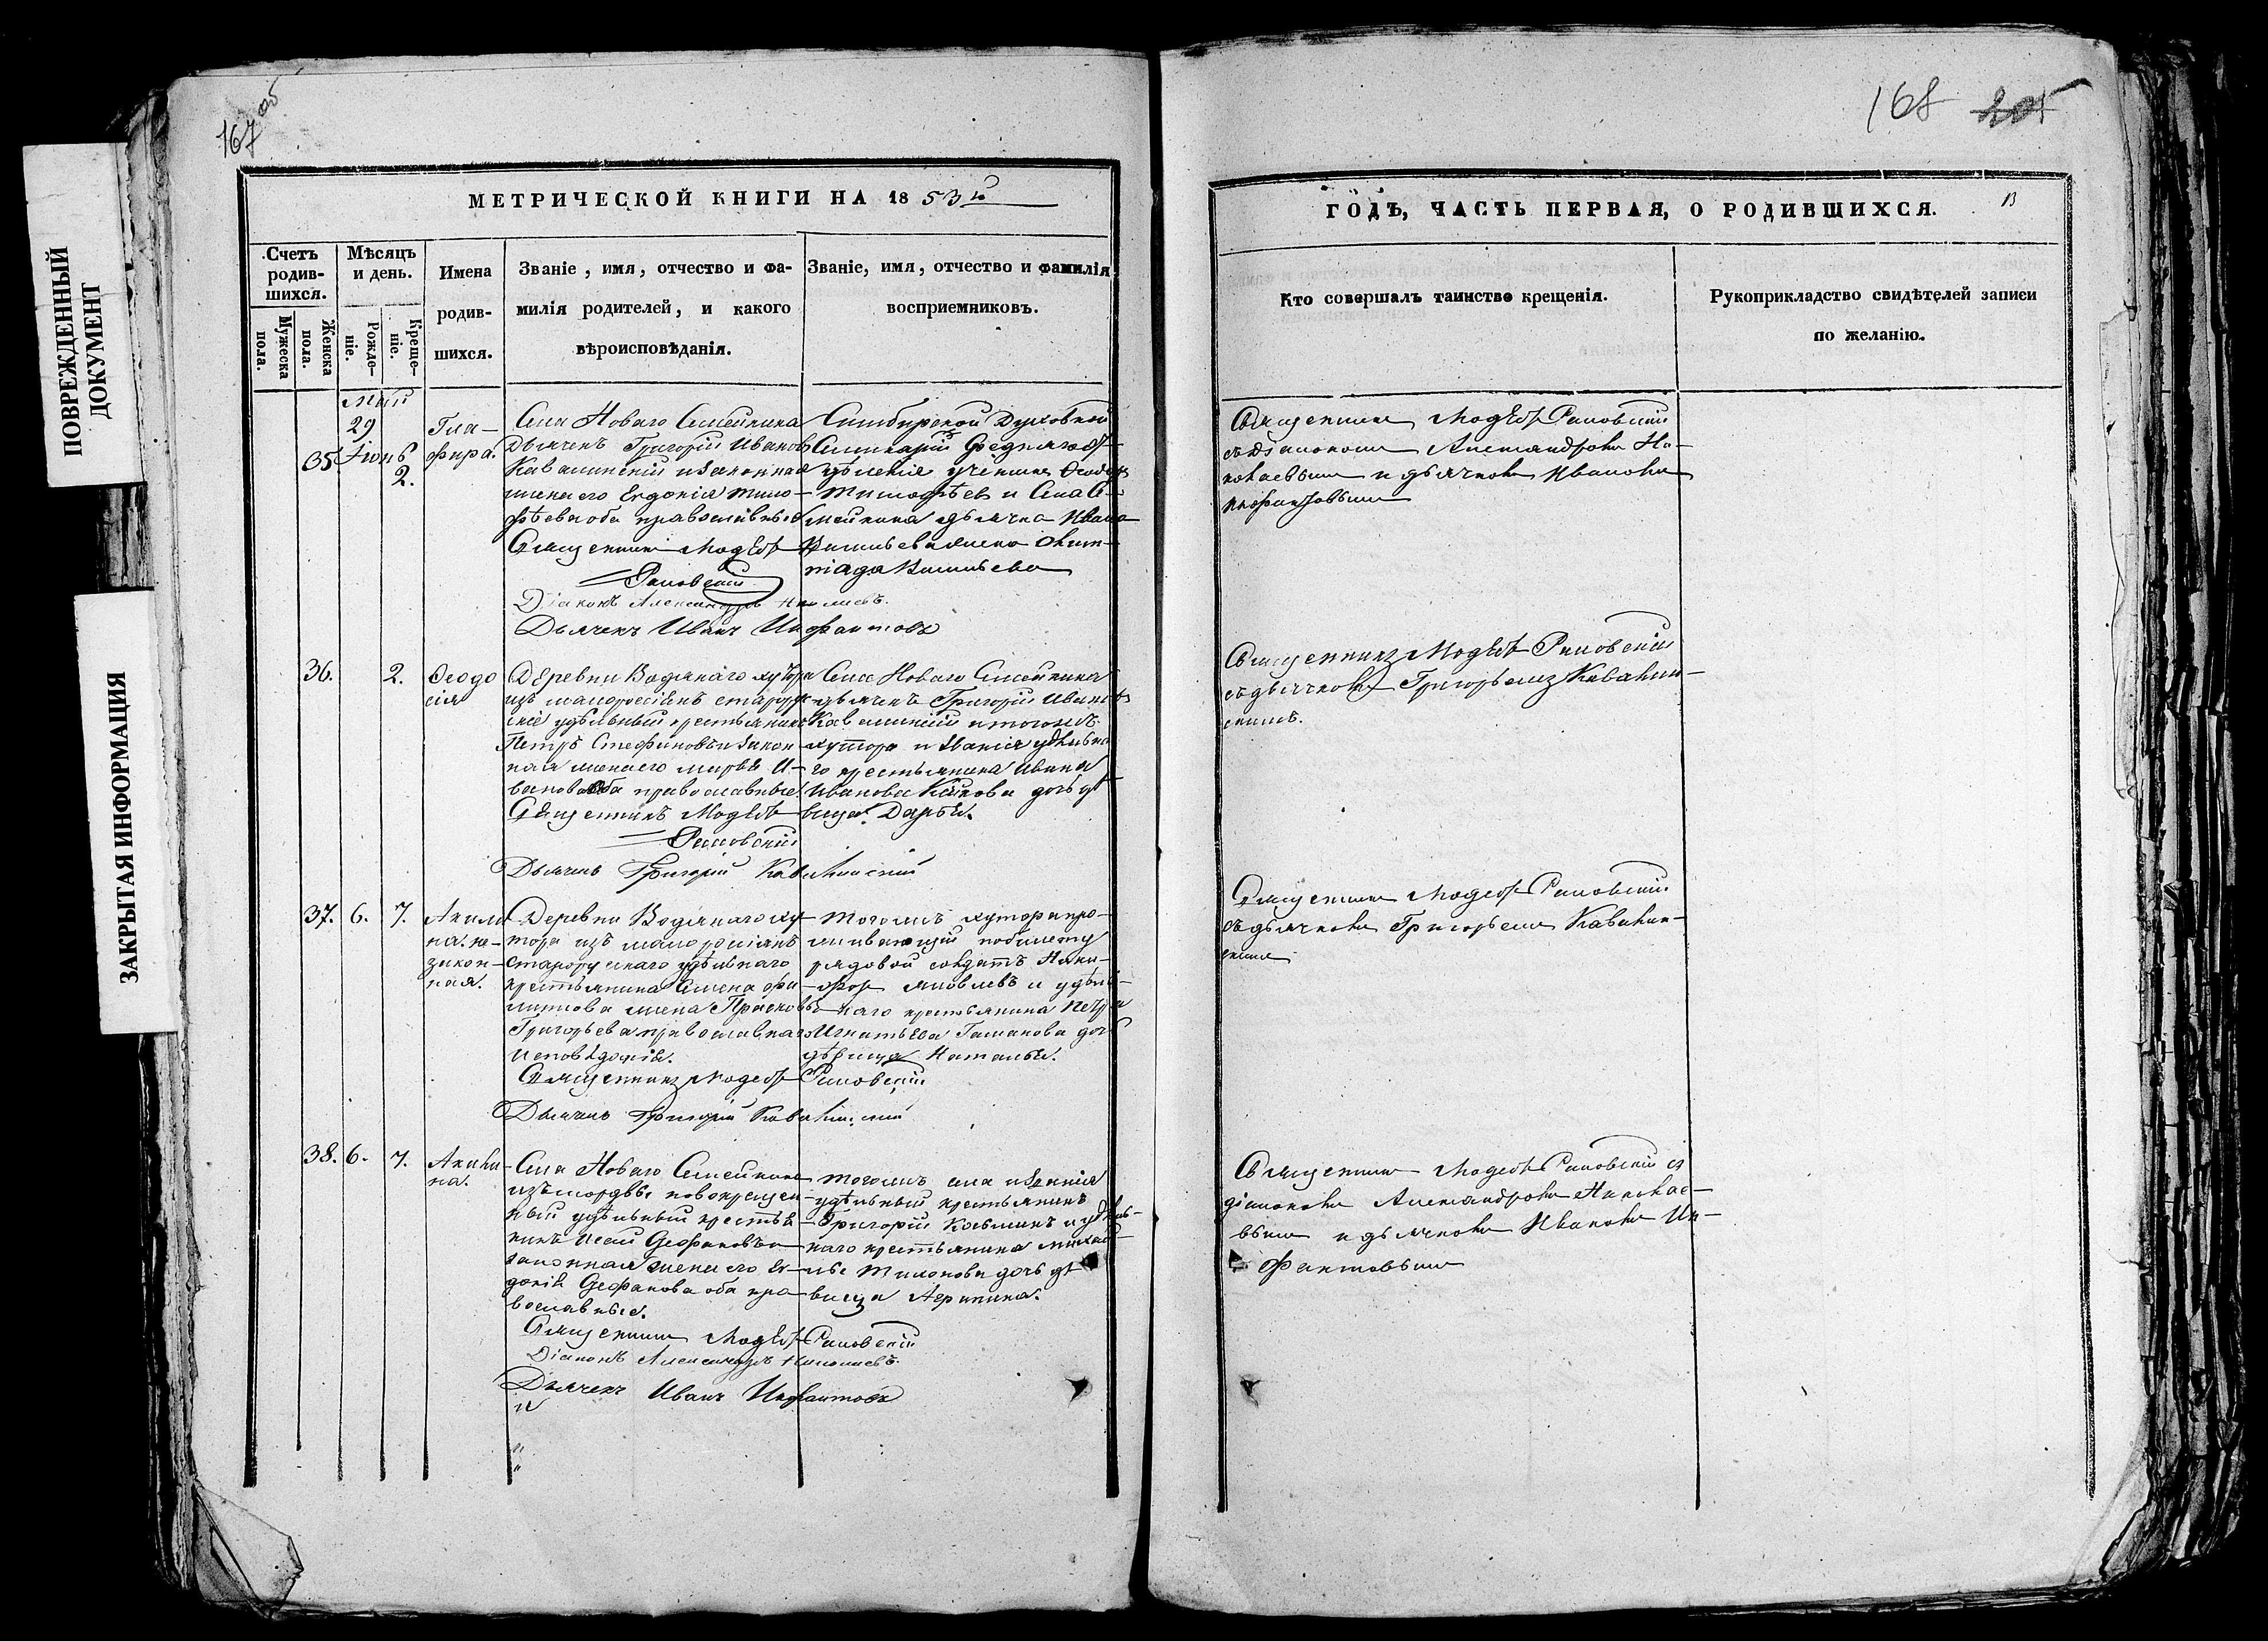 167 об
168
ПОВРЕЖДЕННЫЙ
ДОКУМЕНТ
ЗАКРЫТАЯ ИНФОРМАЦИЯ
МЕТРИЧЕСКОЙ КНИГИ НА 1853й
Счетъ
родив-
шихся.
Мужеска
пола.
Женска
пола.
Мѣсяцъ
и день.
Рожде-
ніе.
Креще-
ніе.
Имена
родив-
шихся.
Званіе, имя, отчество и фа-
милія родителей, и какого
вѣроисповѣданія.
Званіе, имя, отчество и фамилія
восприемниковъ.
35
Май
29
Іюнь
2.
Гла-
фира.
Села Новаго Семейкина
Дьячекъ Григорій Ивановъ
Кавалинскій и законная
жена его Евдокія Тимо-
фѣева оба православные
Священникъ Модестъ
Рановскій
Діаконъ Александръ Николаевъ.
Дьячекъ Иванъ Инфантовъ
Симбирской Духовной
Семинаріи средняго от-
дѣленія ученикъ
Тимофѣевъ и Села Се-
мейкина дьячка Ивана
Васильева жена Олим-
піада Васильева
36.
2.
Ѳеодо
сія
Деревни Водянаго хутора
изъ малоросіянъ старорус-
скіе удѣльный крестьянинъ
Петръ Стефановъ и закон-
ная жена его Марѳа И-
ванова оба православные.
Священникъ Модестъ
Рановскій
Дьячекъ Григорій Кавалинскій
Села Новаго Семейкина
дьячекъ Григорій Ивановъ
Кавалинскій и тогожъ
хутора и званія удѣльна-
го крестьянина Ивана
Иванова дочь дѣ-
вица Дарья.
37. 6. 7.
Акили
на. не-
закон-
ная.
Деревни Водянаго ху-
тора изъ малоросіянъ
старорускаго удѣльнаго
крестьянина Семена Фи-
липпова жена Прасковья
Григорьева православнаго
исповѣданія.
Священникъ Модестъ Рановскій
Дьячекъ Григорій Кавалинскій
Тогожъ хутора про-
живающій по билету
рядовой солдатъ Ники-
форъ Яковлевъ и удѣль-
наго крестьянина Петра
Игнатьева дочь
дѣвица Наталья.
38. 6. 7.
Акили-
на.
Села Новаго Семейкина
изъ мордвы новокрещен-
ный удѣльный крестья-
нинъ Исай Ѳеофановъ и
законная жена его Ев-
докія Ѳеофанова оба пра-
вославные.
Священникъ Модестъ Рановскій
Діаконъ Александръ Николаевъ.
Дьячекъ Иванъ Инфантовъ
Тогожъ села и званія
удѣльный крестьянинъ
Григорій Козминъ и удѣль-
наго крестьянина Михай-
лы дочь дѣ-
вица Агрипина.
ГОДЪ, ЧАСТЬ ПЕРВАЯ, О РОДИВШИХСЯ.
Кто совершалъ таинство крещенія.
Рукоприкладство свидѣтелей записи
по желанію.
Священникъ Модестъ Рановскій
съ діакономъ Александромъ Ни-
колаевымъ и дьячкомъ Иваномъ
Инфантовымъ
Священникъ Модестъ Рановскій
съ дьячкомъ Григорьемъ Кавалин-
скимъ.
Священникъ Модестъ Рановскій
съ дьячкомъ Григорьемъ Кавалин-
скимъ
Священникъ Модестъ Рановскій съ
діакономъ Александромъ Николае-
вымъ и дьячкомъ Иваномъ Ин-
фантовымъ